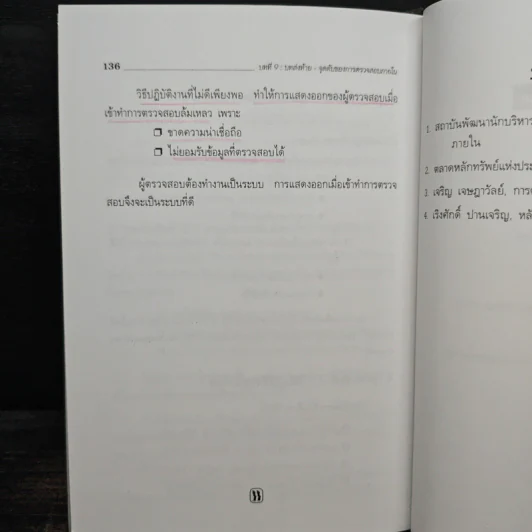 136 บทที่ 9 : บทส่งท้าย - จุดดับของการตรวจสอบภายใน
วิธีปฏิบัติงานที่ไม่ดีเพียงพอ ทำให้การแสดงออกของผู้ตรวจสอบเมื่อ
เข้าทำการตรวจสอบล้มเหลว เพราะ
❒ ขาดความน่าเชื่อถือ
❒ ไม่ยอมรับข้อมูลที่ตรวจสอบได้
ผู้ตรวจสอบต้องทำงานเป็นระบบ การแสดงออกเมื่อเข้าทำการตรวจ
สอบจึงจะเป็นระบบที่ดี
1. สถาบันพัฒนานักบริหาร
ภายใน
2. ตลาดหลักทรัพย์แห่งประ
3. เจริญ เจษฎาวัลย์, การ
4. เริงศักดิ์ ปานเจริญ, หลั